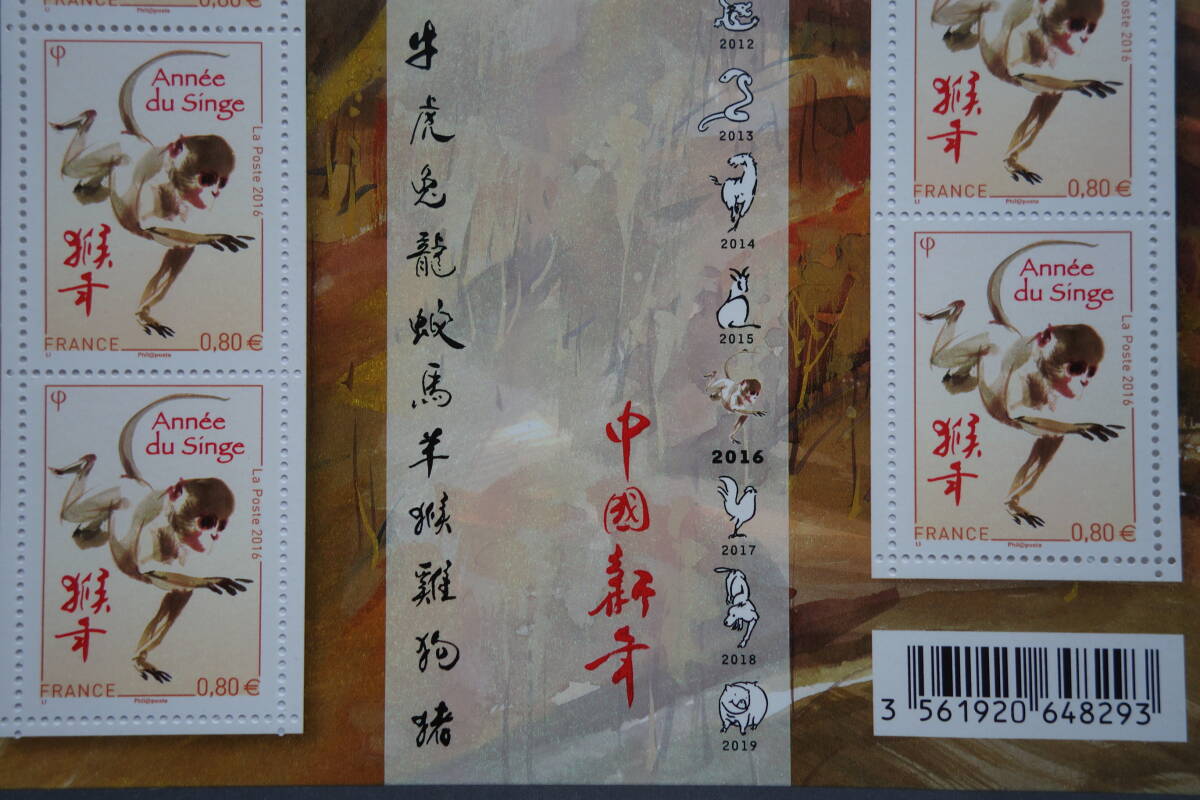 FRANCE 0,80 €
LI Phil@poste
φ
Année
du Singe
La Poste 2016
猴年
FRANCE 0,80 €
LI Phil@poste
φ
Année
du Singe
La Poste 2016
猴年
FRANCE 0,80 €
LI Phil@poste
牛
虎
兔
龍
蛇
馬
羊
猴
雞
狗
猪
中國新年
2012
2013
2014
2015
2016
2017
2018
2019
La Poste 2016
猴年
FRANCE 0,80 €
LI Phil@poste
φ
Année
du Singe
La Poste 2016
猴年
FRANCE 0,80 €
LI Phil@poste
3 561920 648293